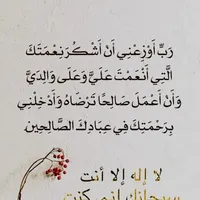 رَبِّ أَوْزِعْنِي أَنْ أَشْكُرَ نِعْمَتَكَ
الَّتِي أَنْعَمْتَ عَلَيَّ وَعَلَى وَالِدَيَّ
وَأَنْ أَعْمَلَ صَالِحًا تَرْضَاهُ وَأَدْخِلْنِي
بِرَحْمَتِكَ فِي عِبَادِكَ الصَّالِحِين.
لا إله إلا أنت
سبحانك إني كنت